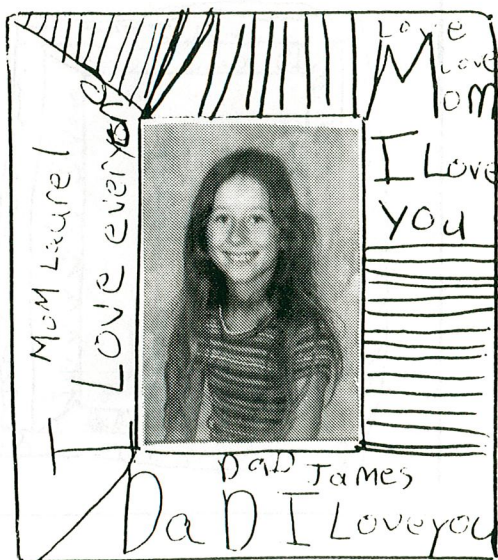 Love
Love
Mom
I Love
you
Mom Laurel
I Love everyone
DaD James
DaD I Love you